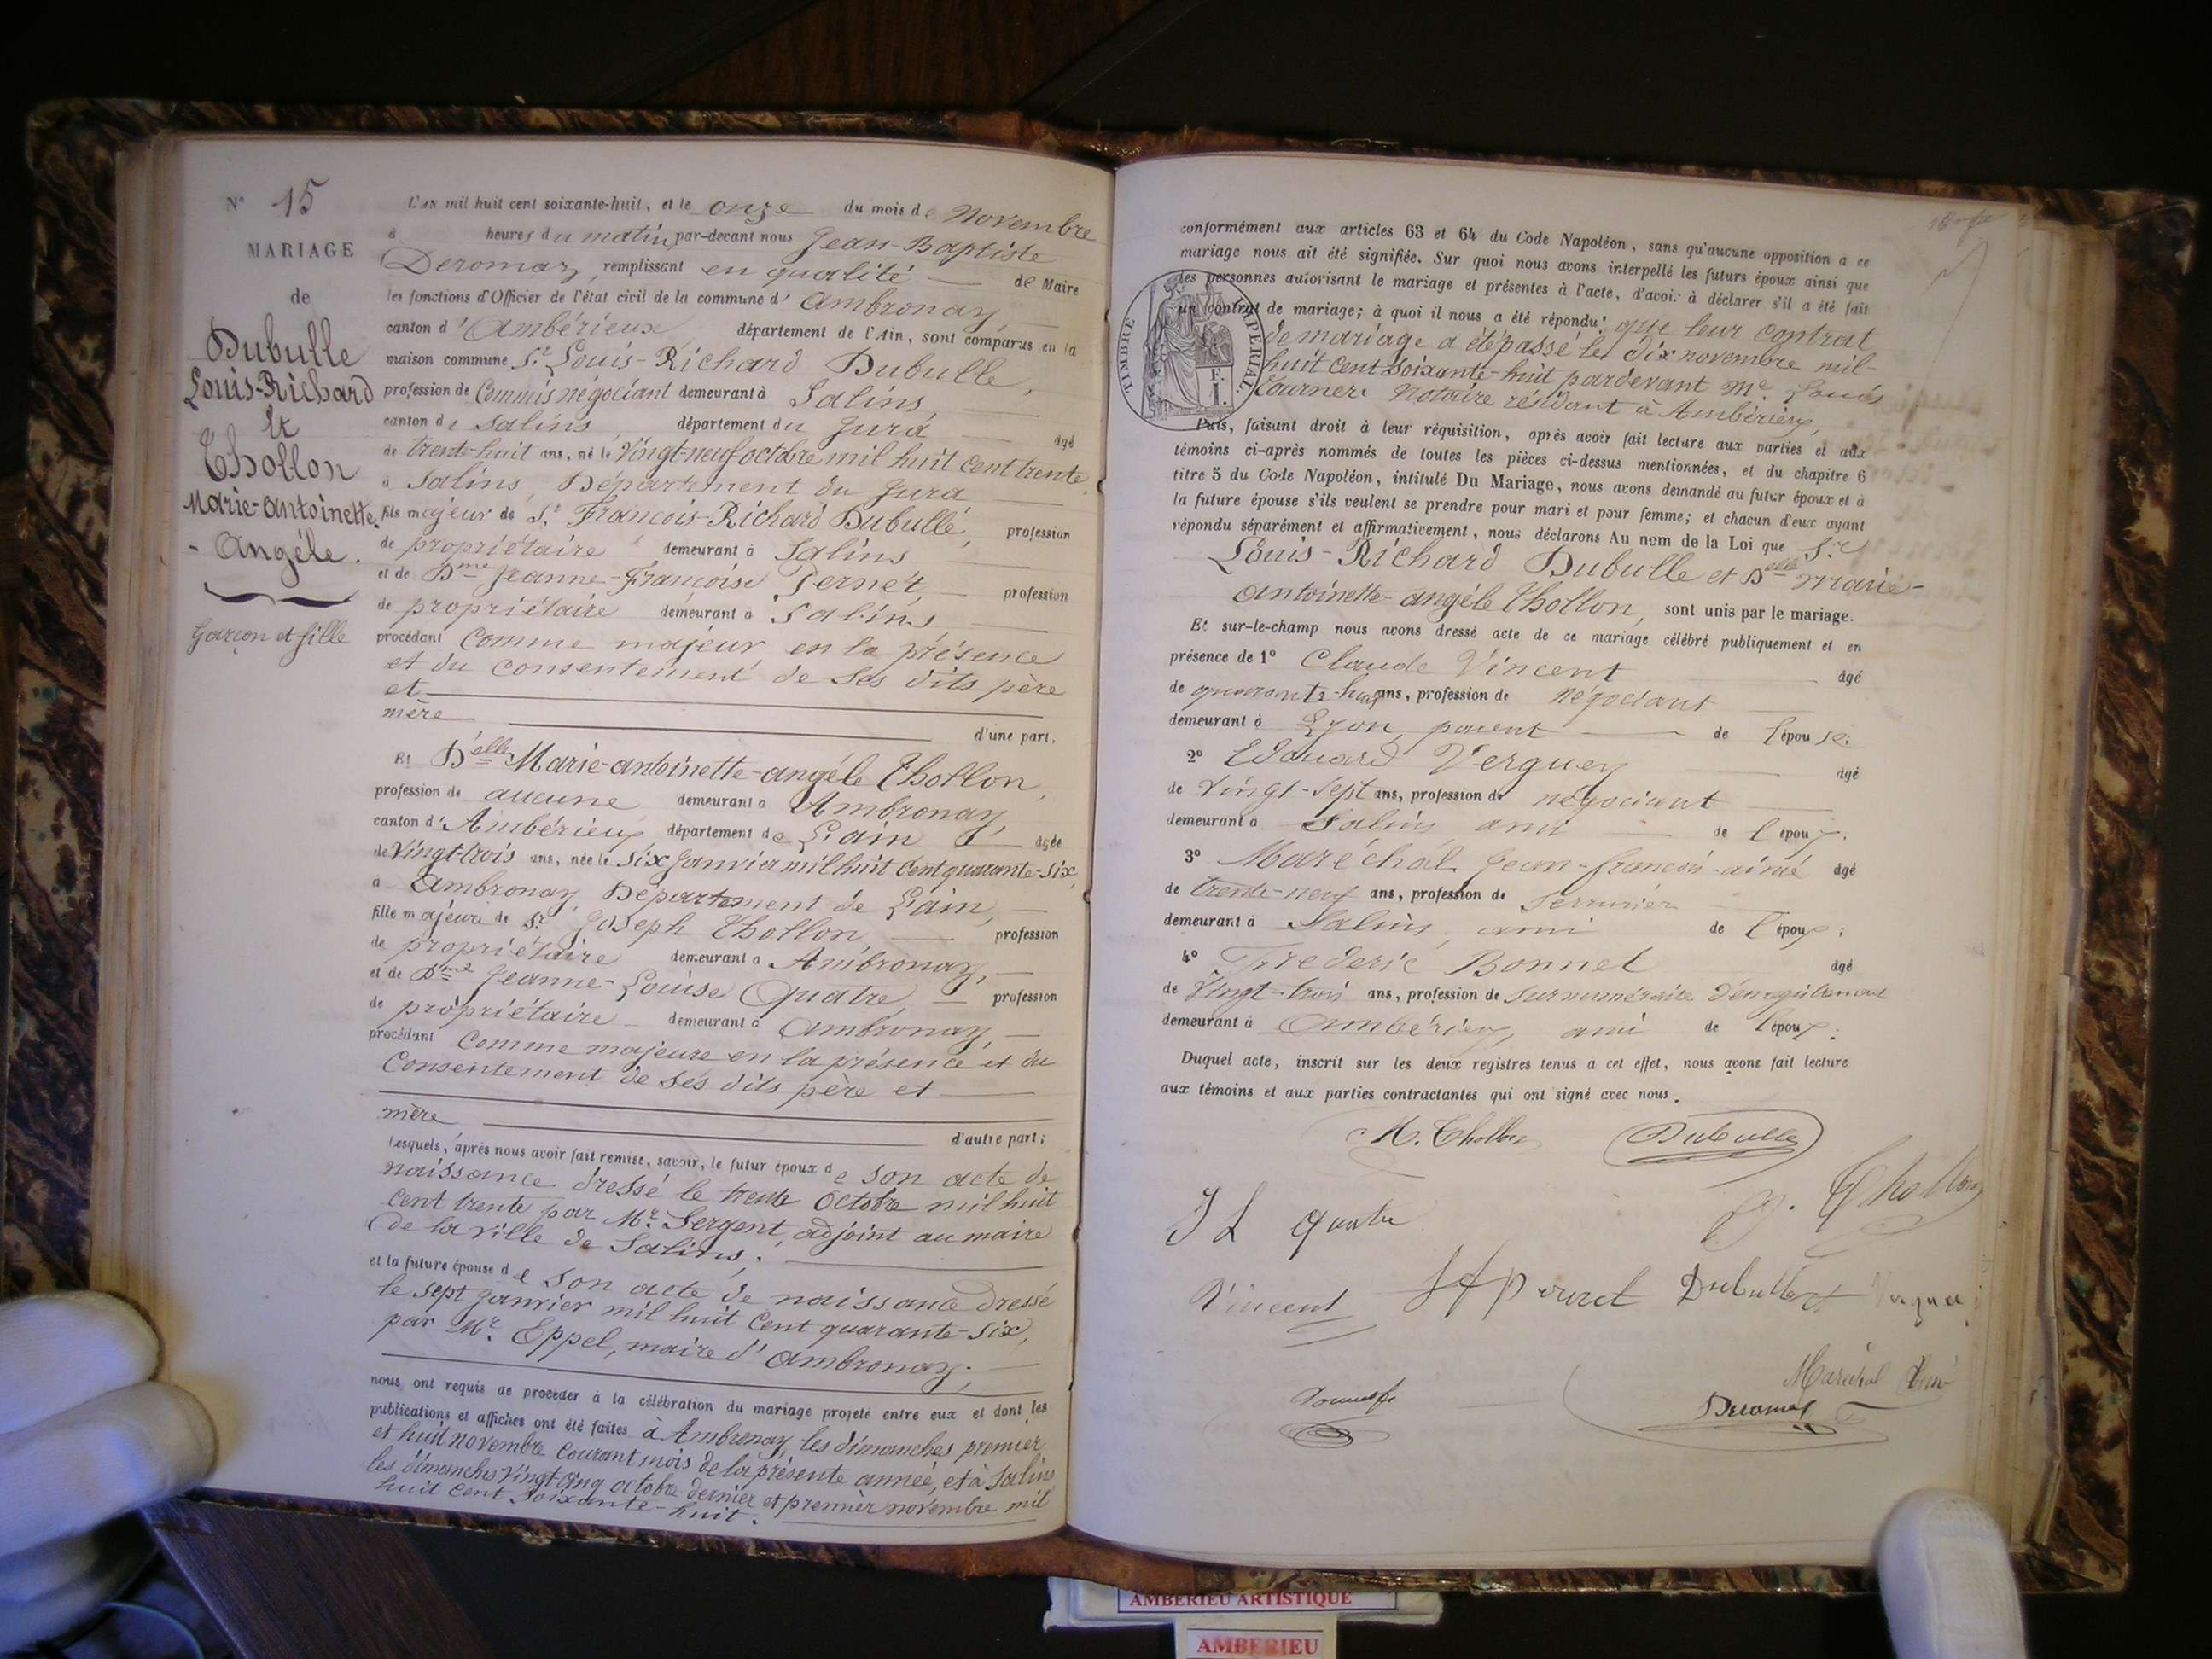 N° 15
MARIAGE
de
Dubulle
Louis-Richard
Et
Thollon
Marie-antoinette
- Angéle.
Garçon et fille
L'an mil huit cent soixante-huit, et le onze du mois de Novembre
à heures du matin, par-devant nous Jean-Baptiste
Deromas, remplissant en qualité de Maire
les fonctions d'Officier de l'état civil de la commune d'Ambronay,
canton d'Ambérieux, département de l'Ain, sont comparus en la
maison commune Sr. Louis-Richard Dubulle,
profession de Commis négociant demeurant à Salins,
canton de Salins, département du Jura âgé
de trente-huit ans, né le Vingt-neuf octobre mil huit cent trente,
à Salins, Département du Jura
fils majeur de Sr. François-Richard Dubulle, profession
de propriétaire demeurant à Salins
et de Dme Jeanne-Françoise Pernet, profession
de propriétaire demeurant à Salins,
procédant comme majeur en la présence
et du consentement de ses dits père
et
mère
d'une part.
Et Delle Marie-antoinette-angéle Thollon,
profession de aucune demeurant à Ambronay,
canton d'Ambérieux département de L'ain âgée
de Vingt-trois ans, née le Six Janvier mil huit cent quarante-six,
à Ambronay, Département de L'ain,
fille majeure de Sr. Joseph Thollon profession
de propriétaire demeurant à Ambronay,
et de Dme Jeanne-Louise Quatre, profession
de propriétaire demeurant à Ambronay,
procédant Comme majeure en la présence et du
Consentement de ses dits père et
mère
d'autre part;
Lesquels, après nous avoir fait remise, savoir, le futur époux de son acte de
naissance dressé le trente Octobre mil huit
cent trente par Mr. Sergent, adjoint au maire
de la ville de Salins;
et la future épouse de son acte de naissance dressé
le sept janvier mil huit Cent quarante-six,
par Mr. Eppel, maire d'Ambronay;
nous ont requis de procéder à la célébration du mariage projeté entre eux et dont les
publications et affiches ont été faites à Ambronay, les dimanches premier
et huit novembre Courant mois de la présente année, et à Salins
les dimanches Vingt-cinq octobre dernier et premier novembre mil
huit Cent Soixante-huit.
conformément aux articles 63 et 64 du Code Napoléon, sans qu'aucune opposition a ce
mariage nous ait été signifiée. Sur quoi nous avons interpellé les futurs époux ainsi que
les personnes autorisant le mariage et présentes à l'acte, d'avoir à déclarer s'il a été fait
un contrat de mariage; à quoi il nous a été répondu: que leur contrat
de mariage a été passé le dix novembre mil-
huit cent soixante-huit pardevant Me. Louis
notaire résidant à Ambérieux,
TIMBRE IMPÉRIAL
Puis, faisant droit à leur réquisition, après avoir fait lecture aux parties et aux
témoins ci-après nommés de toutes les pièces ci-dessus mentionnées, et du chapitre 6
titre 5 du Code Napoléon, intitulé Du Mariage, nous avons demandé au futur époux et à
la future épouse s'ils veulent se prendre pour mari et pour femme; et chacun d'eux ayant
répondu séparément et affirmativement, nous déclarons Au nom de la Loi que Sr.
Louis-Richard Dubulle et Delle Marie-
antoinette-angéle Thollon, sont unis par le mariage.
Et sur-le-champ nous avons dressé acte de ce mariage célébré publiquement et en
présence de 1° Claude Vincent âgé
de quarante-huit ans, profession de négociant
demeurant à Lyon, parent de l'épouse;
2° Edouard Verguey âgé
de Vingt-sept ans, profession de négociant
demeurant à Salins ami de l'époux;
3° Maréchal Jean-françois-aimé âgé
de trente-neuf ans, profession de Serrurier
demeurant à Salins, ami de l'époux;
4° Frederic Bonnet âgé
de Vingt-trois ans, profession de Surnuméraire d'enregistrement
demeurant à Ambérieux, ami de l'époux;
Duquel acte, inscrit sur les deux registres tenus à cet effet, nous avons fait lecture
aux témoins et aux parties contractantes qui ont signé avec nous.
M. Thollon Dubulle
J L quatre J. Thollon
Vincent Dubulle
Maréchal aimé
Deromas
AMBERIEU ARTISTIQUE
AMBERIEU